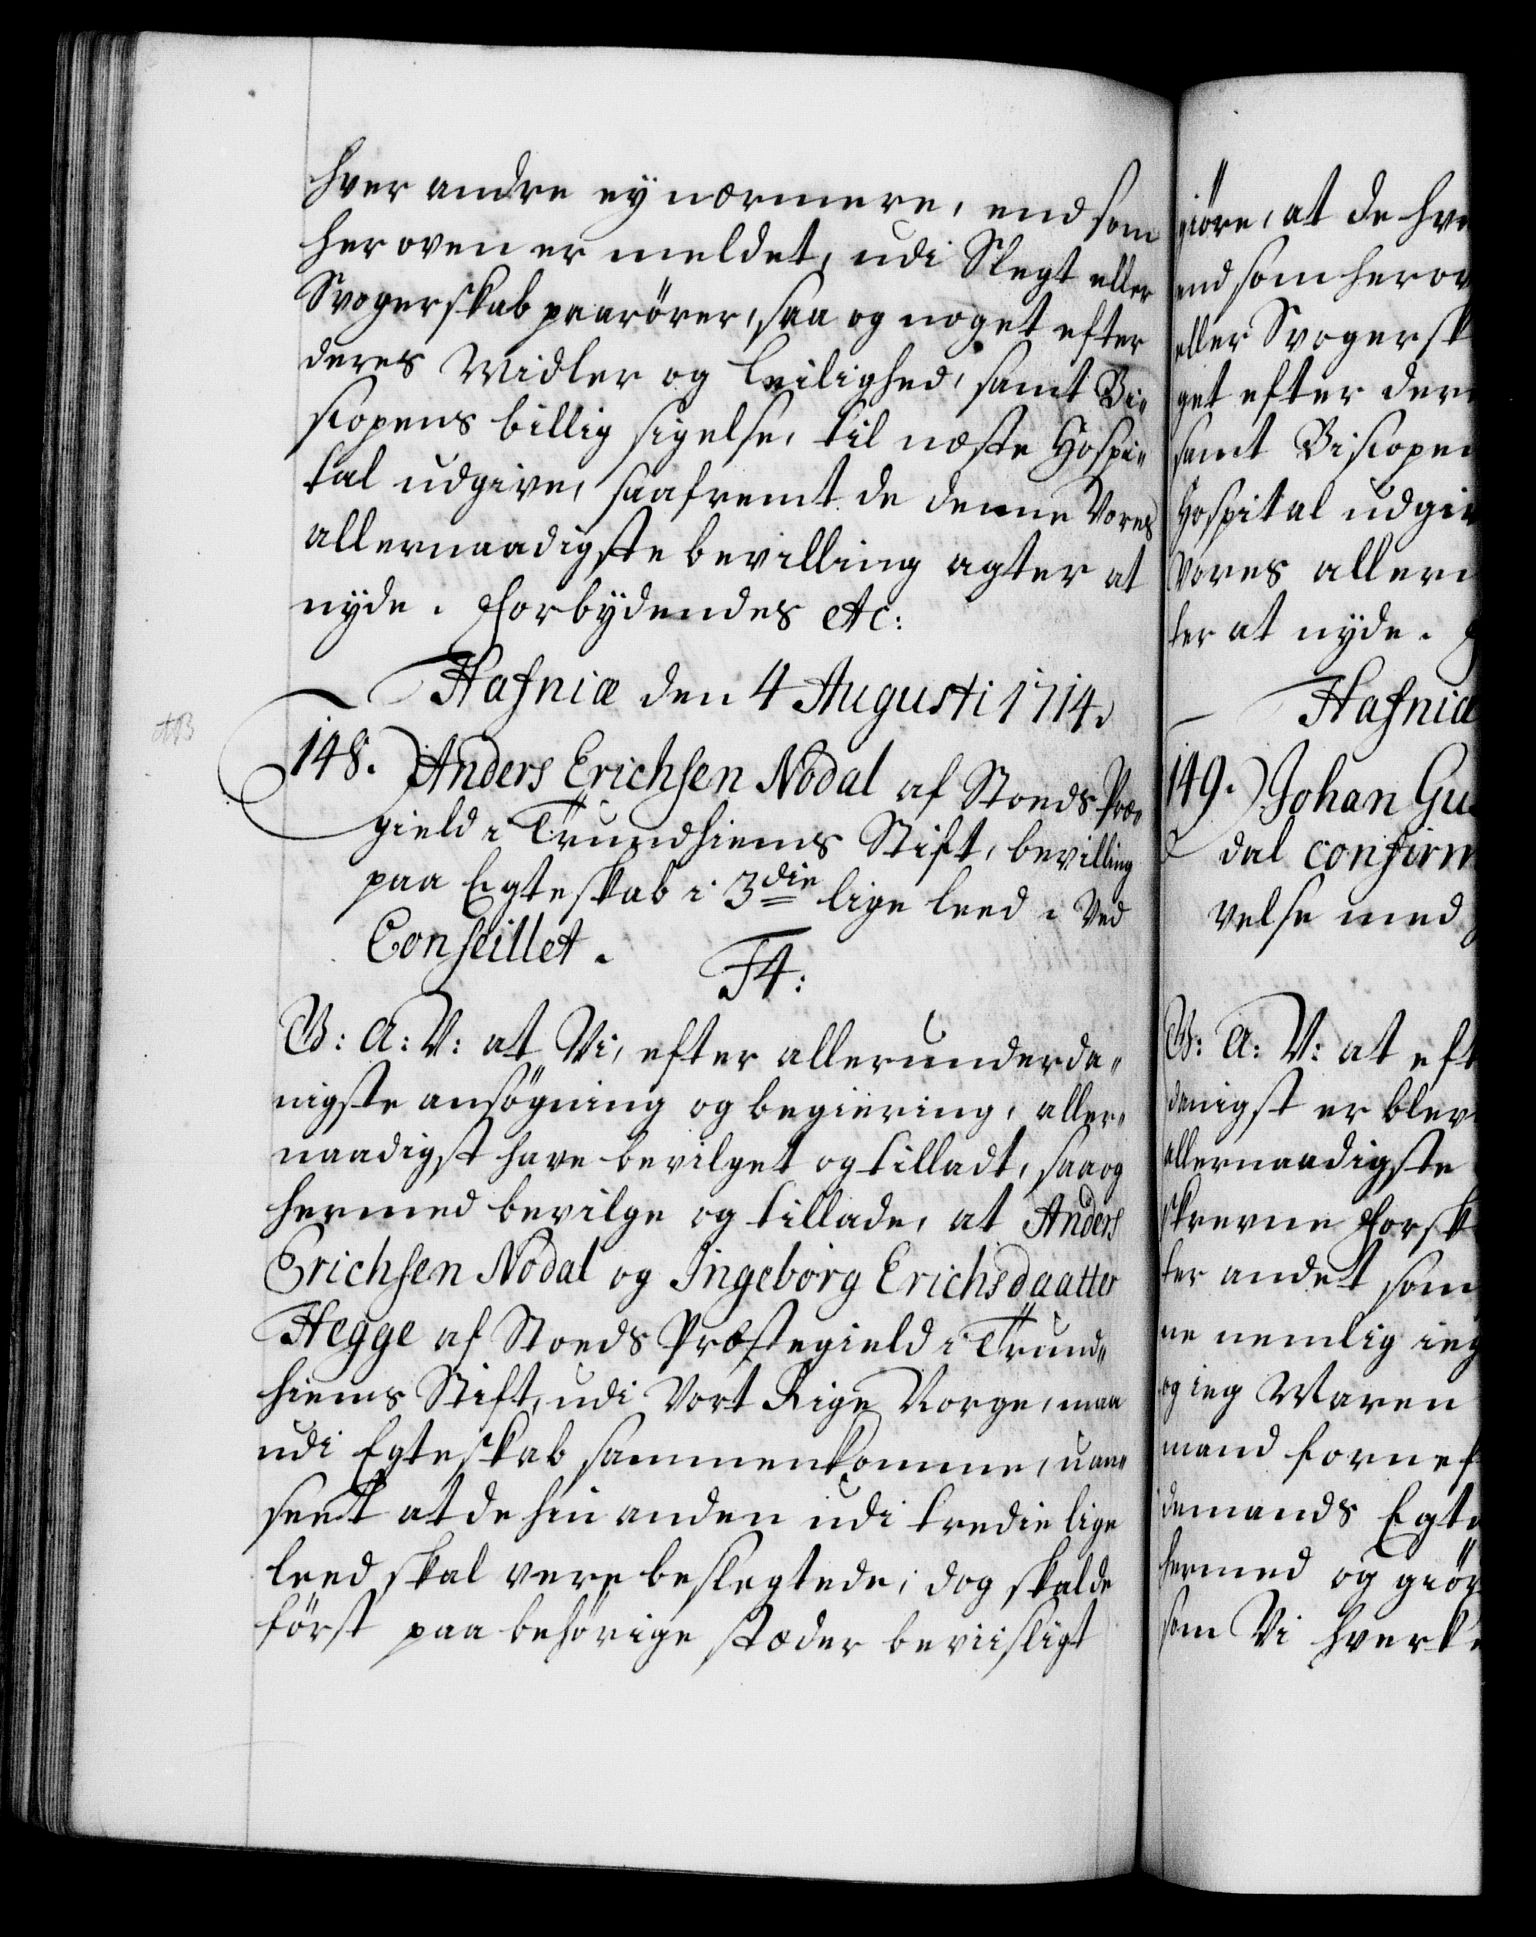 hver andre ey nærmere, end som
her oven er meldet, udi Slegt eller
Svogerskab paarörer, saa og noget efter
deres Midler og leilighed, samt Bi-
scopens billig sigelse, til næste Hospi-
tal udgive, saafremt de denne Vores
allernaadigste bevilling agter at
nyde. Forbydendes etc:
Hafniæ den 4 Augusti 1714.
148. Anders Erichsen Nodal af Stoeds Præ-
gield i Trundhiems Stift, bevilling
paa Egteskab i 3die lige leed i Ved
Conseillet.
F4:
G: A: V: at Vi, efter allerunderda-
nigste ansögning og begiering, aller-
naadigst have bevilget og tilladt, saa og
hermed bevilge og tillade, at Anders
Erichsen Nodal og Ingeborg Erichsdaatter
Hegge af Stoeds Præstegield i Trund-
hiems Stift, udi Vort Rige Norge, maa
udi Egteskab sammenkomme, uan-
seet at de hin anden udi tredie lige
leed skal vere beslegtede; dog skal de
först paa behörige stæder beviisligt
giöre, at de hve
end som herov
eller Svogersk
get efter dere
samt Biscopen
Hospital udgiv
Vores allern
ter at nyde.
Hafniæ
149. Johan Gu
dal confirm
velse med
G: A: V: at eft
danigst er blev
allernaadigste
skrevne Forsk
ter andet som
ne nemlig ieg
og ieg Maren
mand forne
demands Egte
hermed og giör
som Vi hverke